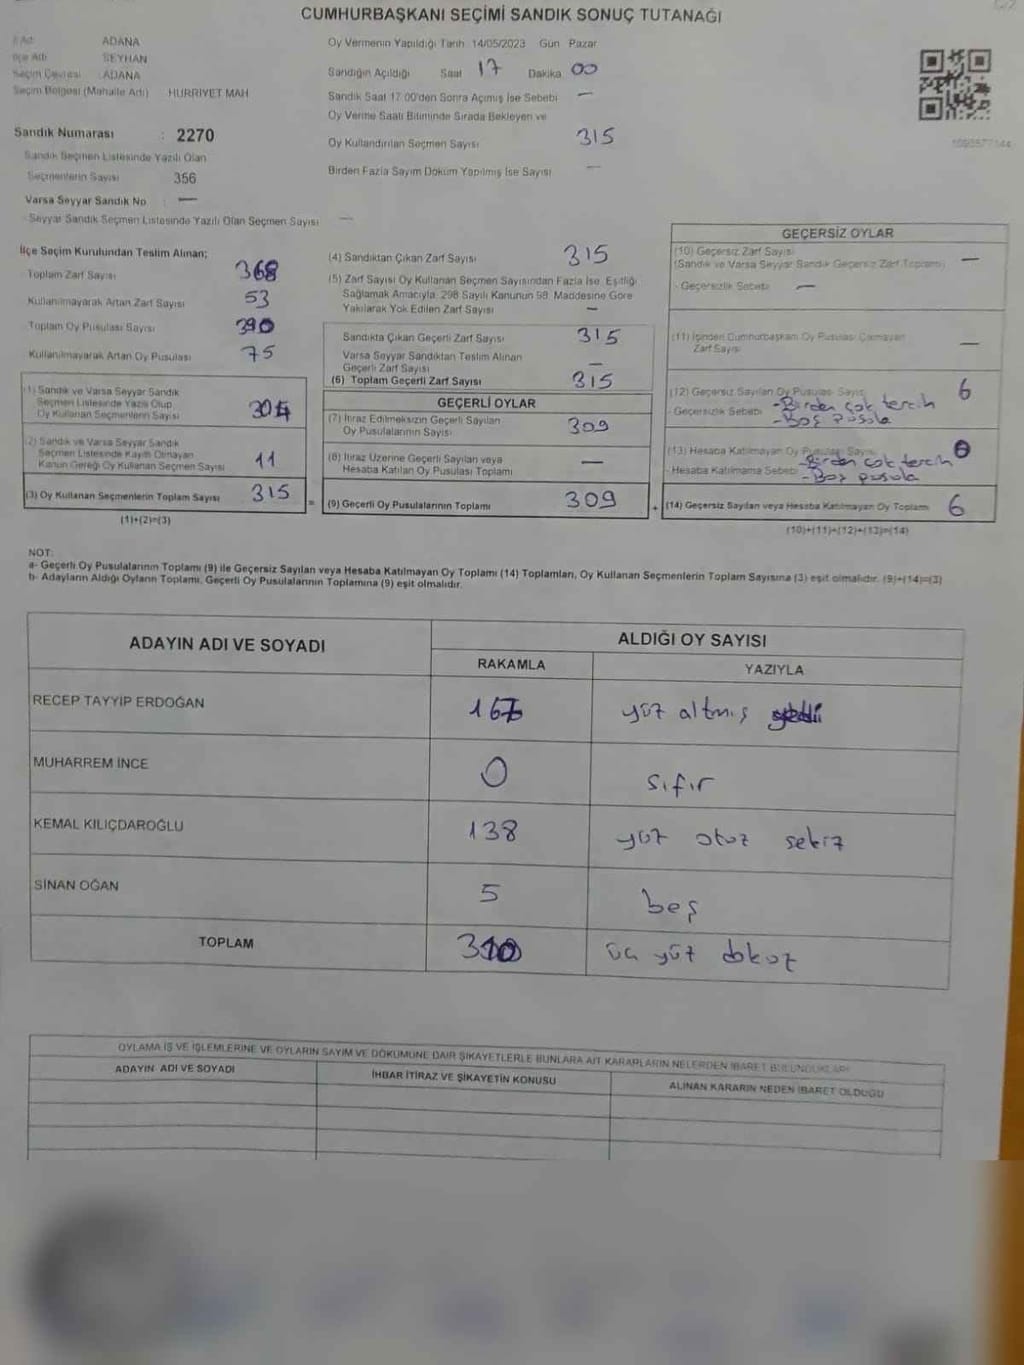 CUMHURBAŞKANI SEÇİMİ SANDIK SONUÇ TUTANAĞI
İl Adı ADANA
İlçe Adı SEYHAN
Seçim Çevresi : ADANA
Seçim Bölgesi (Mahalle Adı) HURRIYET MAH
Sandık Numarası : 2270
Sandık Seçmen Listesinde Yazılı Olan
Seçmenlerin Sayısı 356
Varsa Seyyar Sandık No : —
Seyyar Sandık Seçmen Listesinde Yazılı Olan Seçmen Sayısı —
Oy Vermenin Yapıldığı Tarih 14/05/2023 Gün Pazar
Sandığın Açıldığı Saat 17 Dakika 00
Sandık Saat 17:00'den Sonra Açımış İse Sebebi —
Oy Verme Saati Bitiminde Sırada Bekleyen ve
Oy Kullandırılan Seçmen Sayısı 315
Birden Fazla Sayım Döküm Yapılmış İse Sayısı —
İlçe Seçim Kurulundan Teslim Alınan;
Toplam Zarf Sayısı 368
Kullanılmayarak Artan Zarf Sayısı 53
Toplam Oy Pusulası Sayısı 390
Kullanılmayarak Artan Oy Pusulası 75
(1) Sandık ve Varsa Seyyar Sandık
Seçmen Listesinde Yazılı Olup
Oy Kullanan Seçmenlerin Sayısı 304
(2) Sandık ve Varsa Seyyar Sandık
Seçmen Listesinde Kayıtlı Olmayan
Kanun Gereği Oy Kullanan Seçmen Sayısı 11
(3) Oy Kullanan Seçmenlerin Toplam Sayısı 315
(1)+(2)=(3)
(4) Sandıktan Çıkan Zarf Sayısı 315
(5) Zarf Sayısı Oy Kullanan Seçmen Sayısından Fazla İse, Eşitliği
Sağlamak Amacıyla; 298 Sayılı Kanunun 98. Maddesine Göre
Yakılarak Yok Edilen Zarf Sayısı —
Sandıkta Çıkan Geçerli Zarf Sayısı 315
Varsa Seyyar Sandıktan Teslim Alınan
Geçerli Zarf Sayısı —
(6) Toplam Geçerli Zarf Sayısı 315
GEÇERLİ OYLAR
(7) İtiraz Edilmeksizin Geçerli Sayılan
Oy Pusulalarının Sayısı 309
(8) İtiraz Üzerine Geçerli Sayılan veya
Hesaba Katılan Oy Pusulası Toplamı —
= (9) Geçerli Oy Pusulalarının Toplamı 309
GEÇERSİZ OYLAR
(10) Geçersiz Zarf Sayısı
(Sandık ve Varsa Seyyar Sandık Geçersiz Zarf Toplamı) —
- Geçersizlik Sebebi —
(11) İçinden Cumhurbaşkanı Oy Pusulası Çıkmayan
Zarf Sayısı —
(12) Geçersiz Sayılan Oy Pusulası Sayısı 6
- Geçersizlik Sebebi - Birden çok tercih
- Boş pusula
(13) Hesaba Katılmayan Oy Pusulası Sayısı
- Hesaba Katılmama Sebebi - Birden çok tercih
- Boş pusula
+ (14) Geçersiz Sayılan veya Hesaba Katılmayan Oy Toplamı 6
(10)+(11)+(12)+(13)=(14)
NOT:
a- Geçerli Oy Pusulalarının Toplamı (9) ile Geçersiz Sayılan veya Hesaba Katılmayan Oy Toplamı (14) Toplamları, Oy Kullanan Seçmenlerin Toplam Sayısına (3) eşit olmalıdır. (9)+(14)=(3)
b- Adayların Aldığı Oyların Toplamı, Geçerli Oy Pusulalarının Toplamına (9) eşit olmalıdır.
ADAYIN ADI VE SOYADI ALDIĞI OY SAYISI
RAKAMLA YAZIYLA
RECEP TAYYİP ERDOĞAN yüz altmış
MUHARREM İNCE 0 sıfır
KEMAL KILIÇDAROĞLU 138 yüz otuz sekiz
SİNAN OĞAN 5 beş
TOPLAM üç yüz dokuz
OYLAMA İŞ VE İŞLEMLERİNE VE OYLARIN SAYIM VE DÖKÜMÜNE DAİR ŞİKAYETLERLE BUNLARA AİT KARARLARIN NELERDEN İBARET BULUNDUKLARI
ADAYIN ADI VE SOYADI İHBAR İTİRAZ VE ŞİKAYETİN KONUSU ALINAN KARARIN NEDEN İBARET OLDUĞU